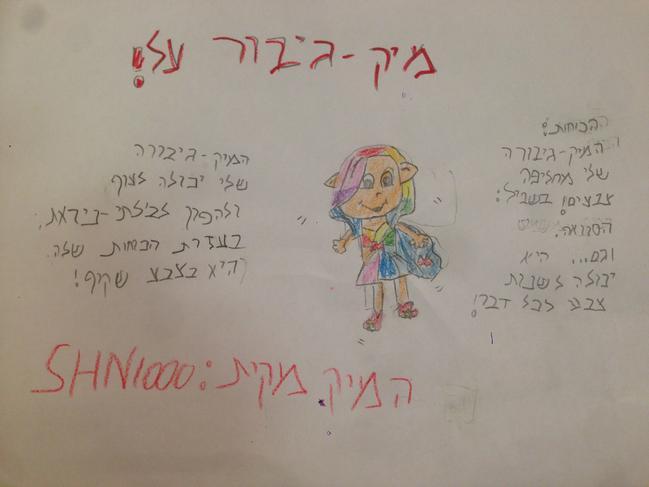 מיק-גיבור על!
הכוחות:
המיק-גיבורה
שלי מחליפה
צבעים! בשביל:
הסוואה.
וגם... היא
יכולה לשנות
צבע לכל דבר!
המיק-גיבורה
שלי יכולה לצוף
ולהפוך לבלתי-ניראת,
בעזרת הכוחות שלה.
היא בצבע שקוף!
המיק מקית: SHN1000